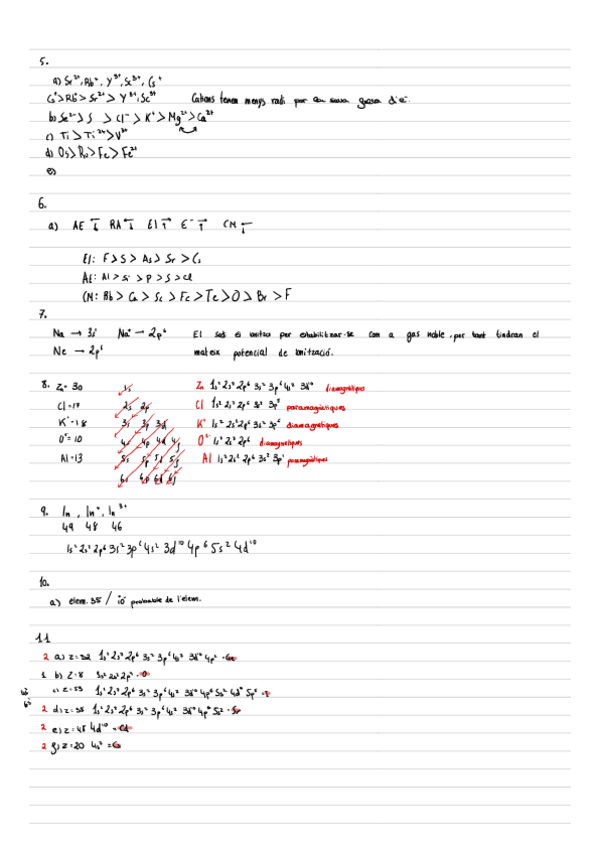 5.
a) Sr²⁺, Rb⁺, Y³⁺, Sc³⁺, Cs⁺
Cs⁺ > Rb⁺ > Sr²⁺ > Y³⁺, Sc³⁺ Cations tenen menys radi por
b) Se²⁻ > S > Cl⁻ > K⁺ > Mg²⁺ > Ca²⁺
c) Ti > Ti²⁺ > V³⁺
d) Os > Ru > Fe > Fe²⁺
e)
6.
a) AE RA EI E⁻ CM
EI: F > S > As > Sr > Cs
AE: Al > Si > P > S > Cl
CM: Rb > Ca > Sc > Fe > Te > O > Br > F
7.
Na → 3s¹ Na⁺ → 2p⁶ El sodi es ionitza per estabilitzar-se com a gas noble, per tant tindran el
Ne → 2p⁶ mateix potencial de ionització.
8. Zn = 30 1s Zn 1s² 2s² 2p⁶ 3s² 3p⁶ 4s² 3d¹⁰ diamagnètiques
Cl = 17 2s 2p Cl 1s² 2s² 2p⁶ 3s² 3p⁵ paramagnètiques
K⁺ = 18 3s 3p 3d K⁺ 1s² 2s² 2p⁶ 3s² 3p⁶ diamagnètiques
O²⁻ = 10 4s 4p 4d 4f O²⁻ 1s² 2s² 2p⁶ diamagnètiques
Al = 13 5s 5p 5d 5f Al 1s² 2s² 2p⁶ 3s² 3p¹ paramagnètiques
6s 6p 6d 6f
9. In, In⁺, In³⁺
49 48 46
1s² 2s² 2p⁶ 3s² 3p⁶ 4s² 3d¹⁰ 4p⁶ 5s² 4d¹⁰
10.
a) elem. 35 / ió probable de l'elem.
11
2 a) z = 32 1s² 2s² 2p⁶ 3s² 3p⁶ 4s² 3d¹⁰ 4p² = Ge
1 b) z = 8 1s² 2s² 2p⁴ = O
c) z = 53 1s² 2s² 2p⁶ 3s² 3p⁶ 4s² 3d¹⁰ 4p⁶ 5s² 4d¹⁰ 5p⁵ = I
2 d) z = 38 1s² 2s² 2p⁶ 3s² 3p⁶ 4s² 3d¹⁰ 4p⁶ 5s² = Sr
2 e) z = 48 4d¹⁰ = Cd
2 g) z = 20 4s² = Ca